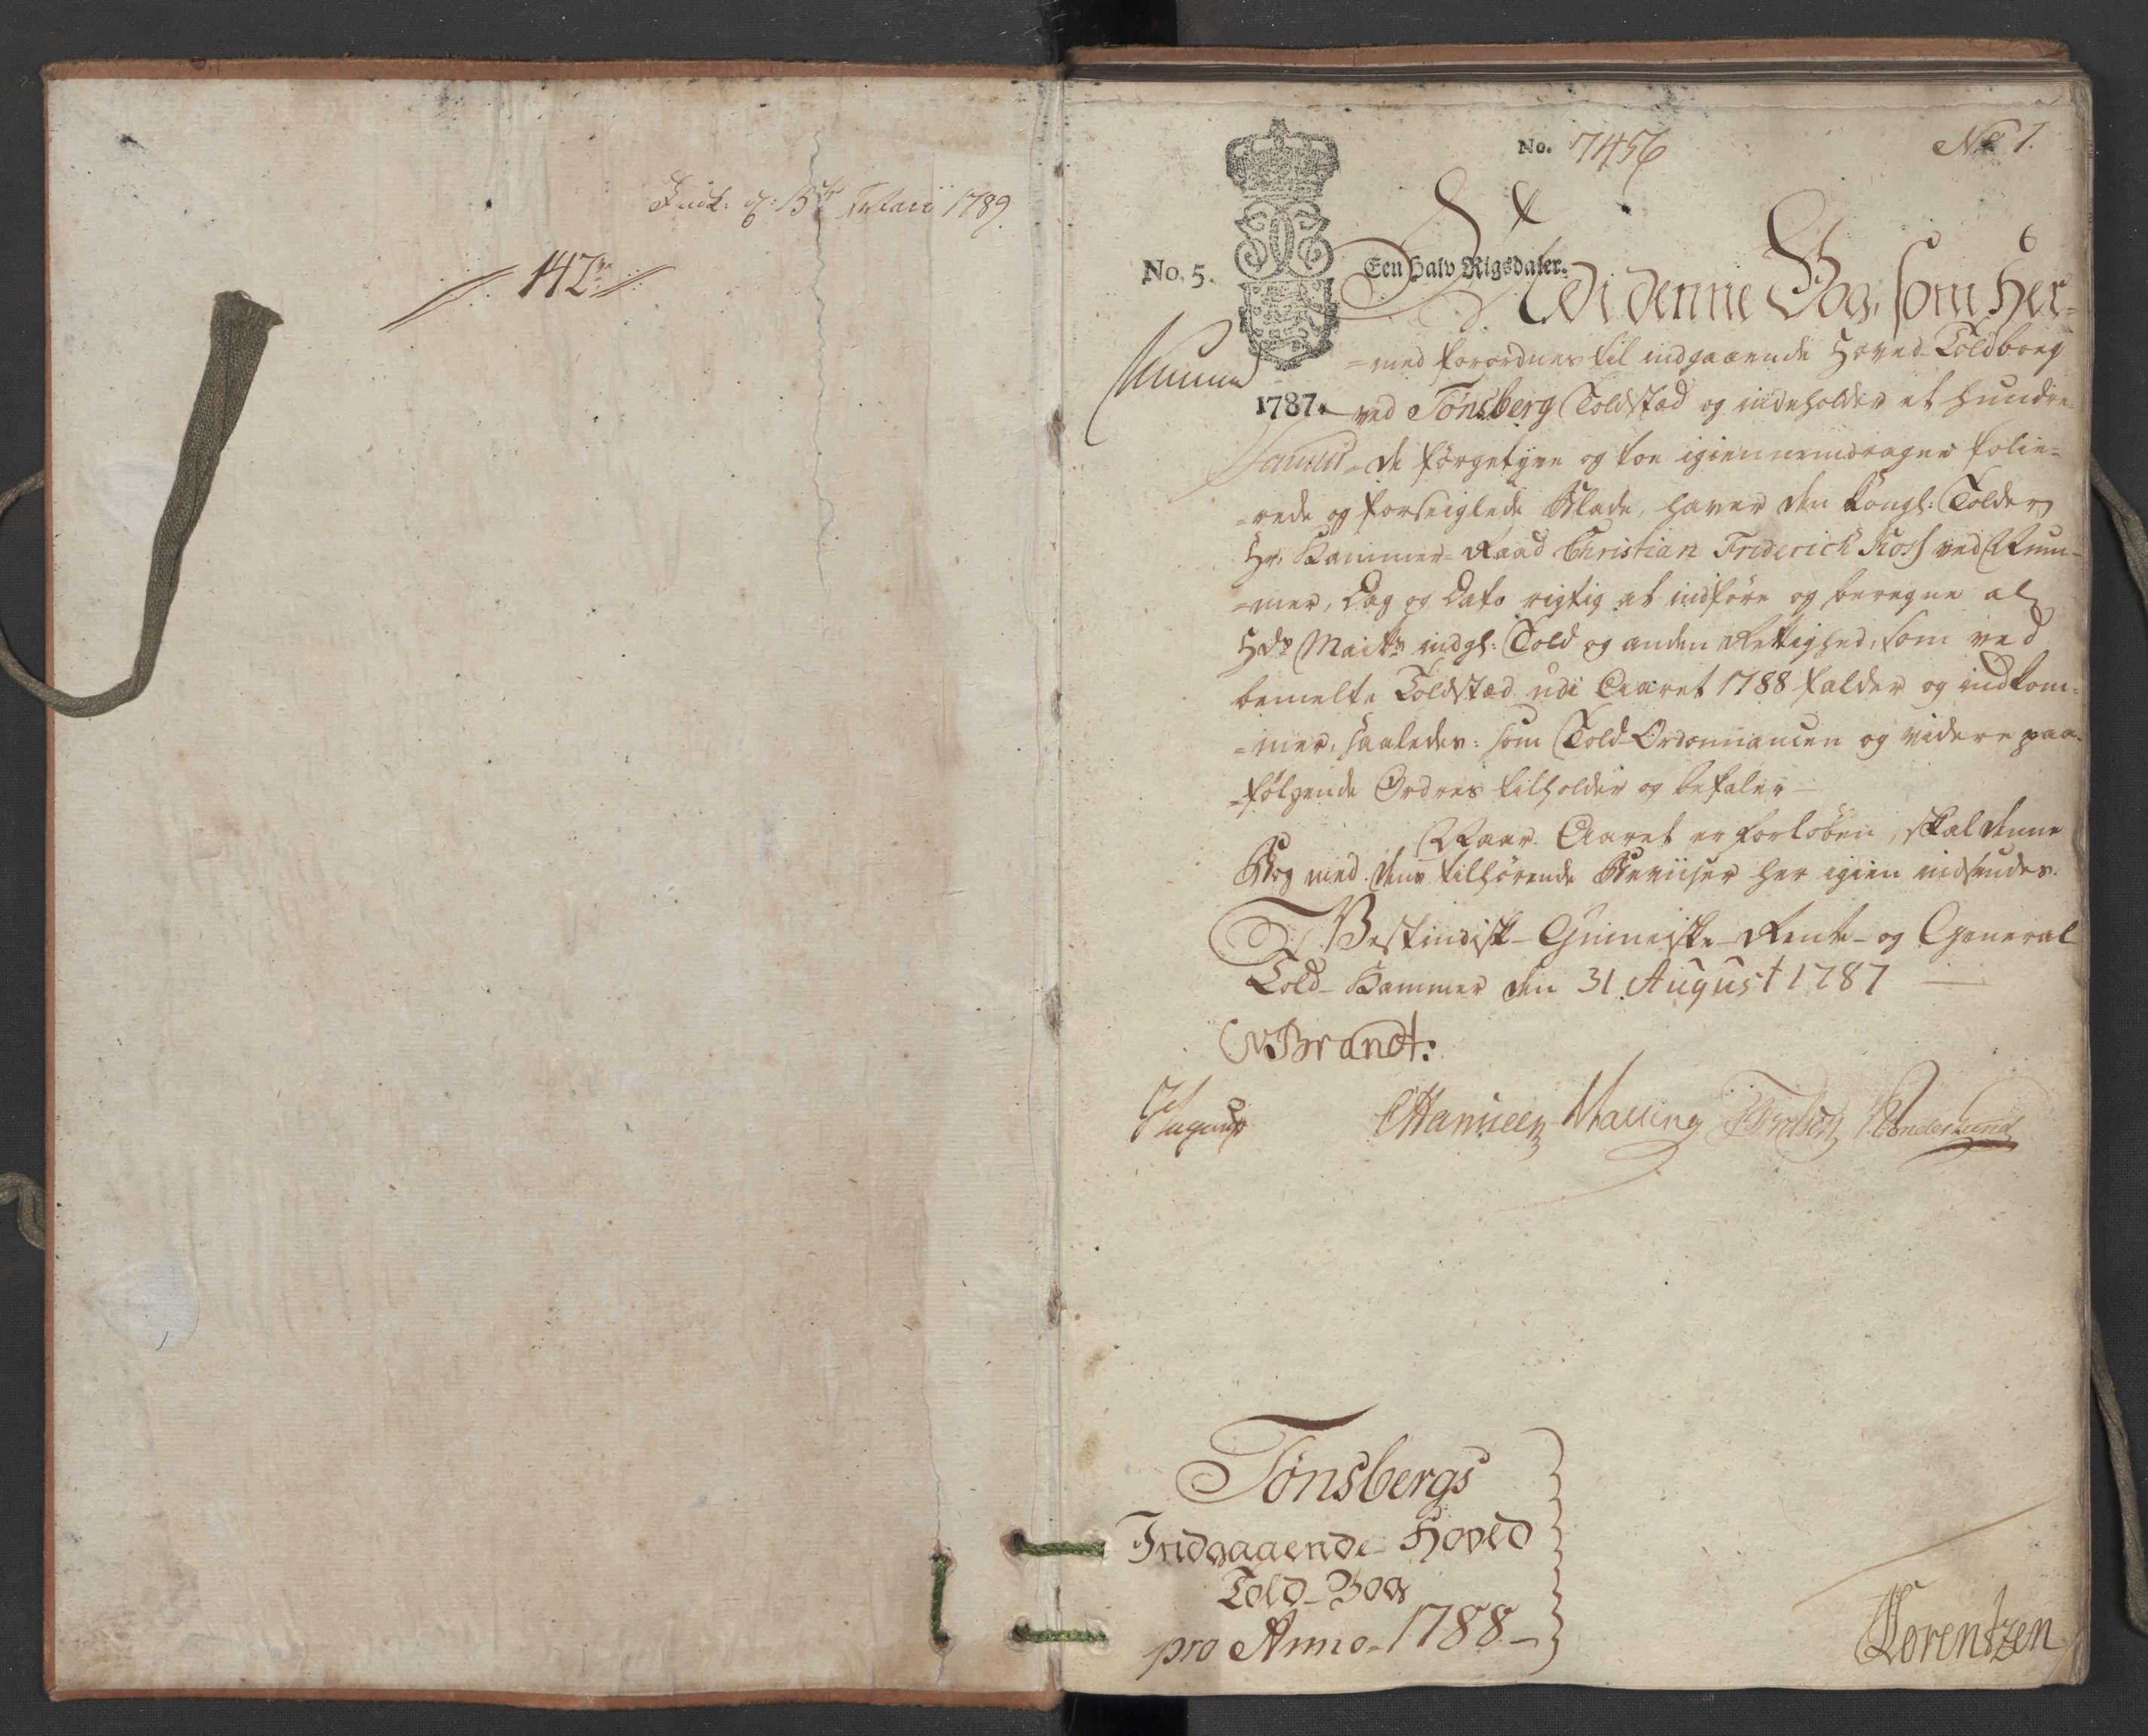 Indk: d: 13de Maii 1789
142
No. 7456
No 1.
6
No. 5.
Een Halv Rigsdaler.
1787.
Udi denne Bog, som Her=
=med forordnes til indgaaende Hoved-Toldbog
ved Tønsberg Toldstæd og indeholder et hundre=
=de förgetyve og toe igiennemdragne folie=
=rede og forseiglede Blade, haver den Kongl: Tolder
Hr. Kammer-Raad Christian Friderich Koss ved Num-
=mer, Dag og Dato rigtig at indföre og beregne al
Hds Maits indgl: Told og anden Rettighed, som ved
bemelte Toldstæd udi Aaret 1788 falder og indkom=
=mer, saaledes som Told-Ordonnancen og videre paa=
=fölgende Ordres tilholder og befaler —
Naar Aaret er forløben, skal denne
Bog med dens tilhörende Beviiser her igien indsendes.
Vestindisk-Guineiske-Rente- og General
Told-Kammer den 31 August 1787 —
Brandt:
Malling
Tønsbergs
Indgaaende Hoved
Told-Bog
pro Anno 1788
Lorentzen